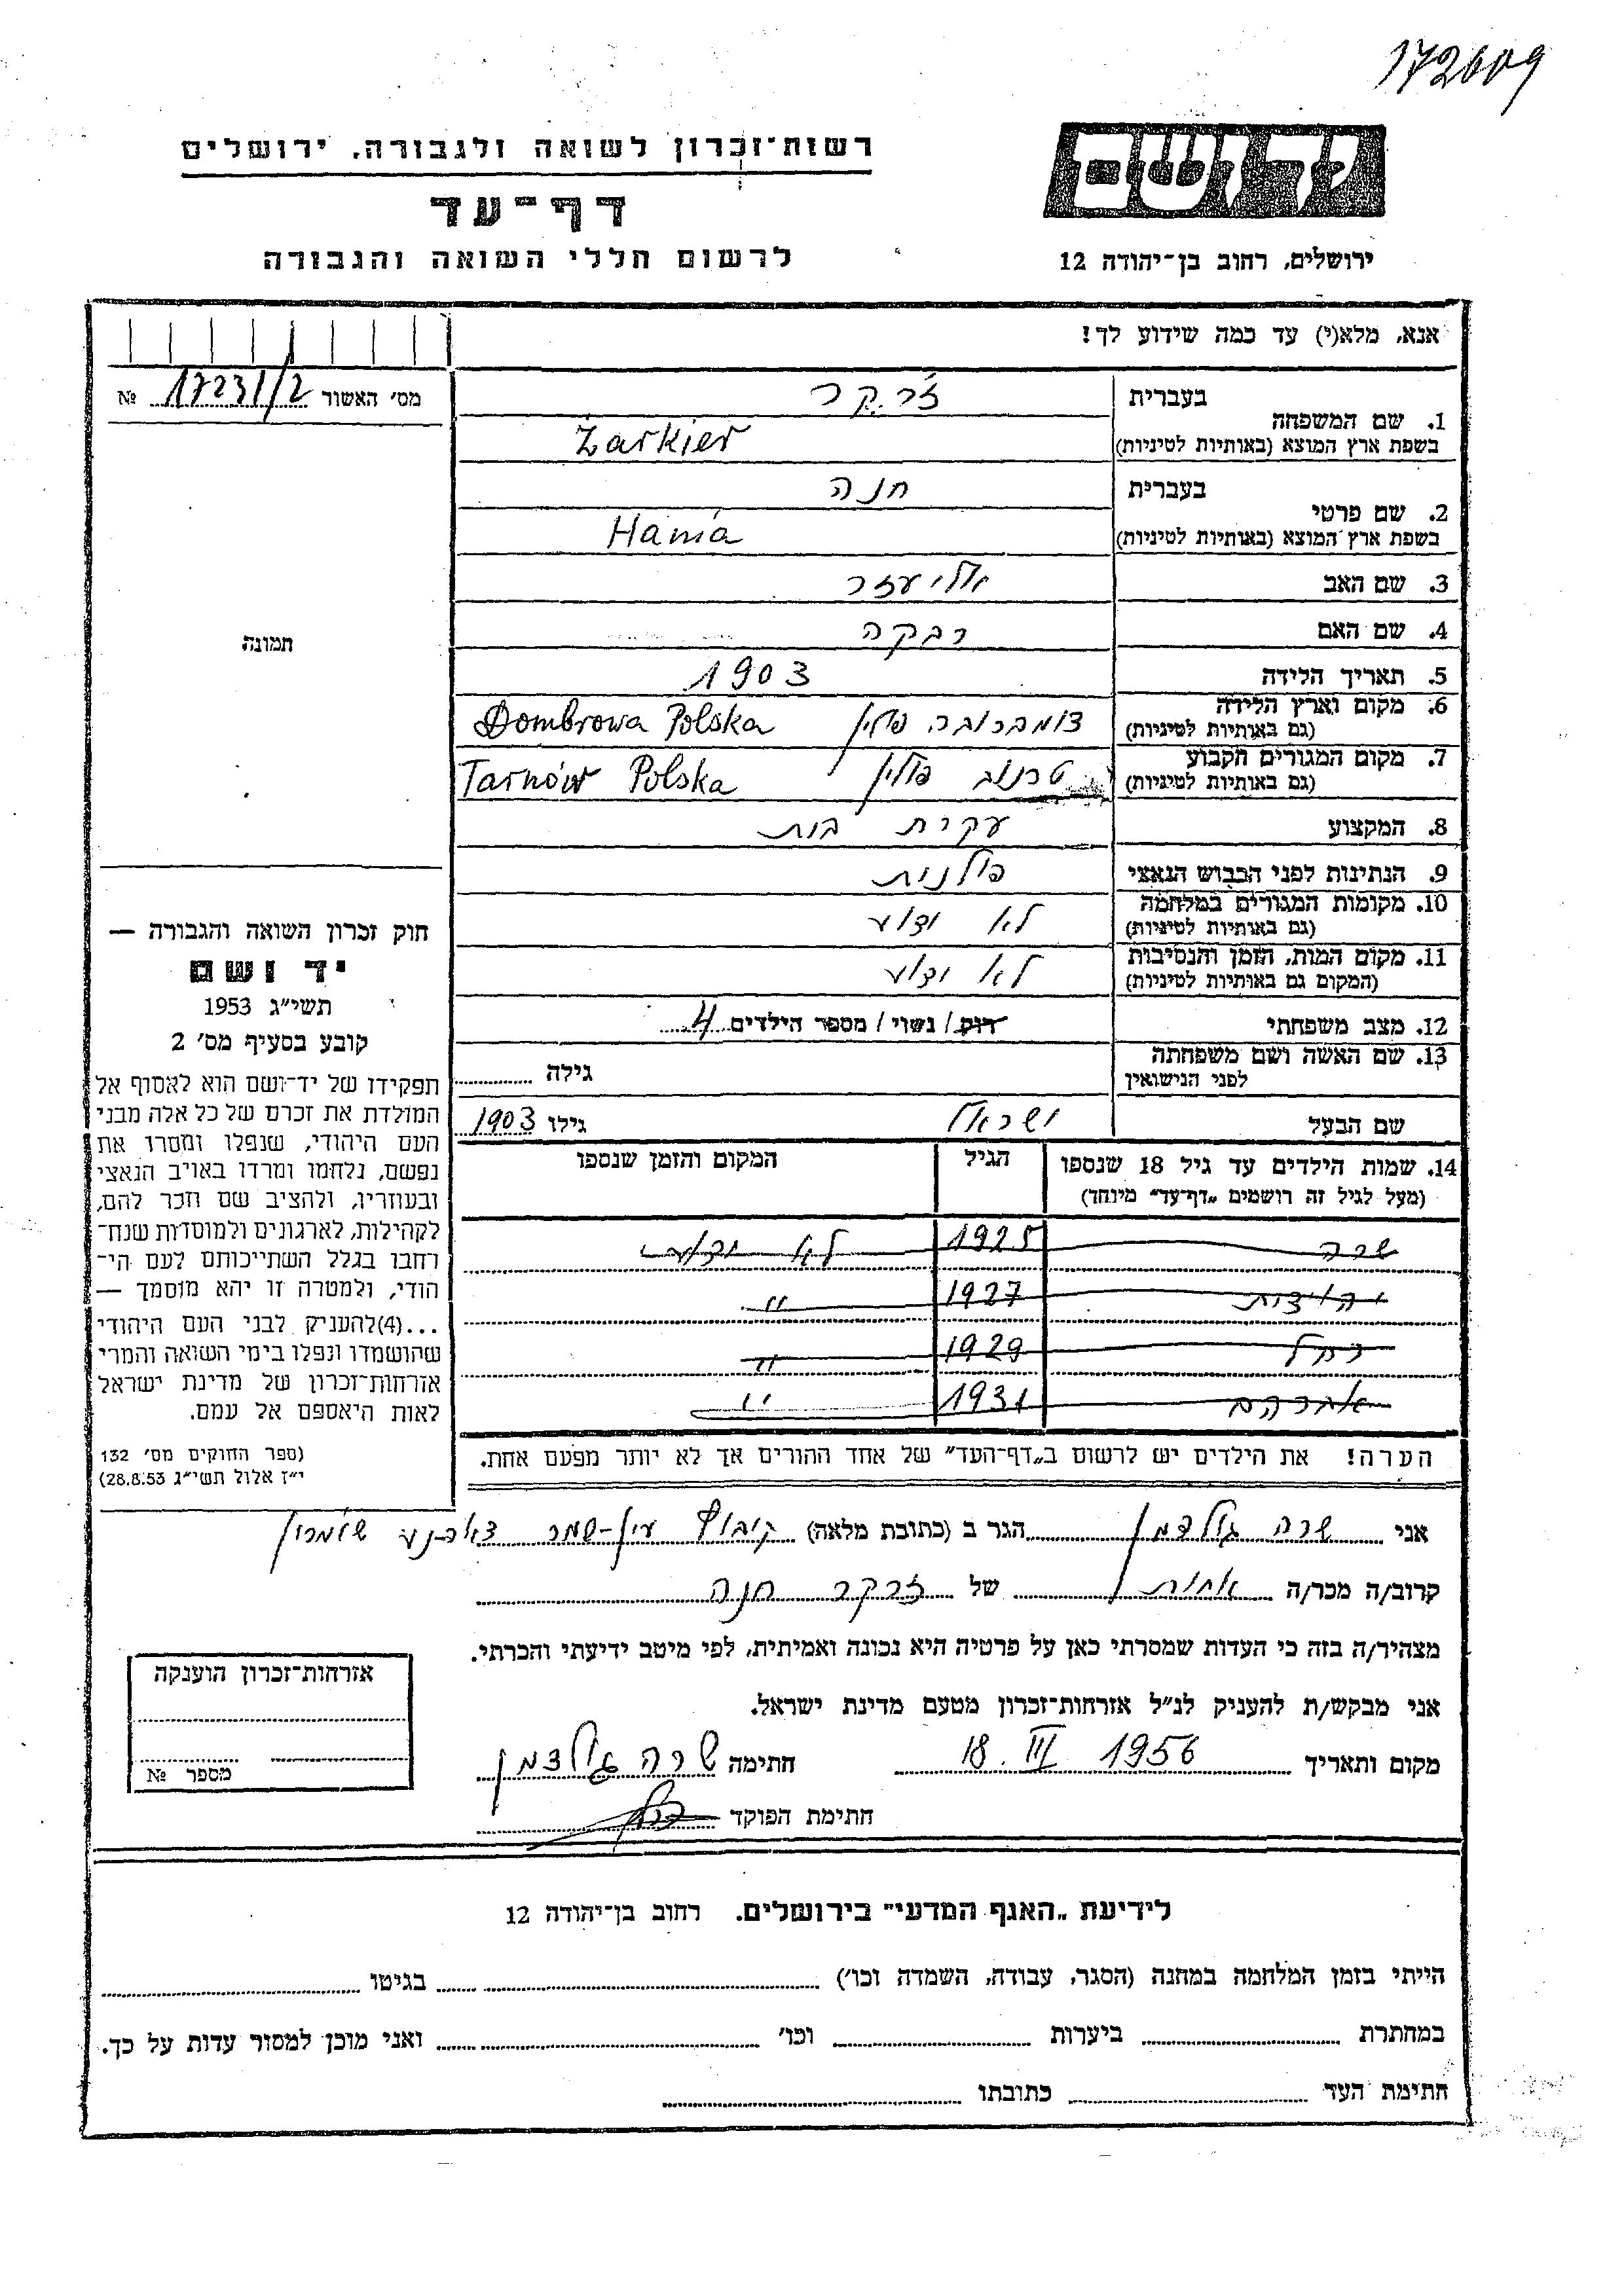 172609
יד ושם
ירושלים, רחוב בן־יהודה 12
רשות־זכרון לשואה ולגבורה, ירושלים
דף־עד
לרשום חללי השואה והגבורה
אנא, מלא(י) עד כמה שידוע לך!
מס׳ האשור 17231/2 №
תמונה
חוק זכרון השואה והגבורה —
יד ושם
תשי״ג 1953
קובע בסעיף מס׳ 2
תפקידו של יד־ושם הוא לאסוף אל
המולדת את זכרם של כל אלה מבני
העם היהודי, שנפלו ומסרו את
נפשם, נלחמו ומרדו באויב הנאצי
ובעוזריו, ולהציב שם וזכר להם,
לקהילות, לארגונים ולמוסדות שנח־
רחבו בגלל השתייכותם לעם הי־
הודי, ולמטרה זו יהא מוסמך —
...(4)להעניק לבני העם היהודי
שהושמדו ונפלו בימי השואה והמרי
אזרחות־זכרון של מדינת ישראל
לאות היאספם אל עמם.
(ספר החוקים מס׳ 132
י״ז אלול תשי״ג 28.8.53)
1. שם המשפחה בעברית ז'רקר
בשפת ארץ המוצא (באותיות לטיניות) Żarkier
2. שם פרטי בעברית חנה
בשפת ארץ המוצא (באותיות לטיניות) Hania
3. שם האב אליעזר
4. שם האם רבקה
5. תאריך הלידה 1903
6. מקום וארץ הלידה (גם באותיות לטיניות) דומברובה פולין Dombrowa Polska
7. מקום המגורים הקבוע (גם באותיות לטיניות) טרנוב פולין Tarnów Polska
8. המקצוע עקרת בית
9. הנתינות לפני הכבוש הנאצי פולנית
10. מקומות המגורים במלחמה (גם באותיות לטיניות) לא ידוע
11. מקום המות, הזמן והנסיבות (המקום גם באותיות לטיניות) לא ידוע
12. מצב משפחתי רוק/נשוי/מספר הילדים 4
13. שם האשה ושם משפחתה לפני הנישואין גילה
שם הבעל ישראל גילו 1903
14. שמות הילדים עד גיל 18 שנספו (מעל לגיל זה רושמים „דף־עד״ מיוחד) הגיל המקום והזמן שנספו
שרה 1925 לא ידוע
יהודית 1927 "
רחל 1929 "
אברהם 1931 "
הערה! את הילדים יש לרשום ב„דף־העד״ של אחד ההורים אך לא יותר מפעם אחת.
אני שרה גולדמן הגר ב (כתובת מלאה) קיבוץ עין-שמר דאר-נע שומרון
קרוב/ה מכר/ה אחות של זרקר חנה
מצהיר/ה בזה כי העדות שמסרתי כאן על פרטיה היא נכונה ואמיתית, לפי מיטב ידיעתי והכרתי.
אני מבקש/ת להעניק לנ״ל אזרחות־זכרון מטעם מדינת ישראל.
מקום ותאריך 18. III 1956 חתימה שרה גולדמן
חתימת הפוקד
אזרחות־זכרון הוענקה
מספר №
לידיעת „האגף המדעי״ בירושלים. רחוב בן־יהודה 12
הייתי בזמן המלחמה במחנה (הסגר, עבודה, השמדה וכו׳) בגיטו
במחתרת ביערות וכו׳ ואני מוכן למסור עדות על כך.
חתימת העד כתובתו